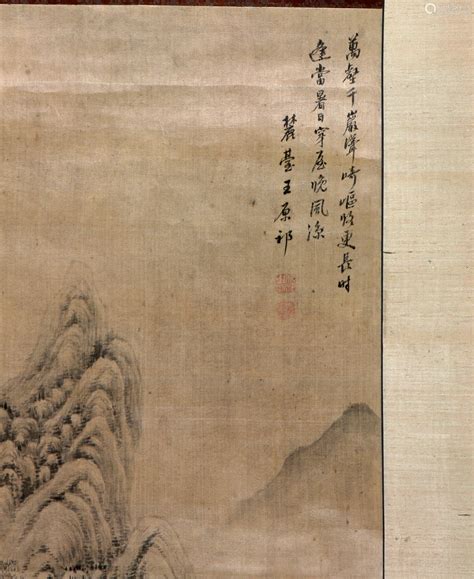 萬壑千巖聳崎嶇修更長时
逢當暑日穿屋晚風涼
麓臺王原祁